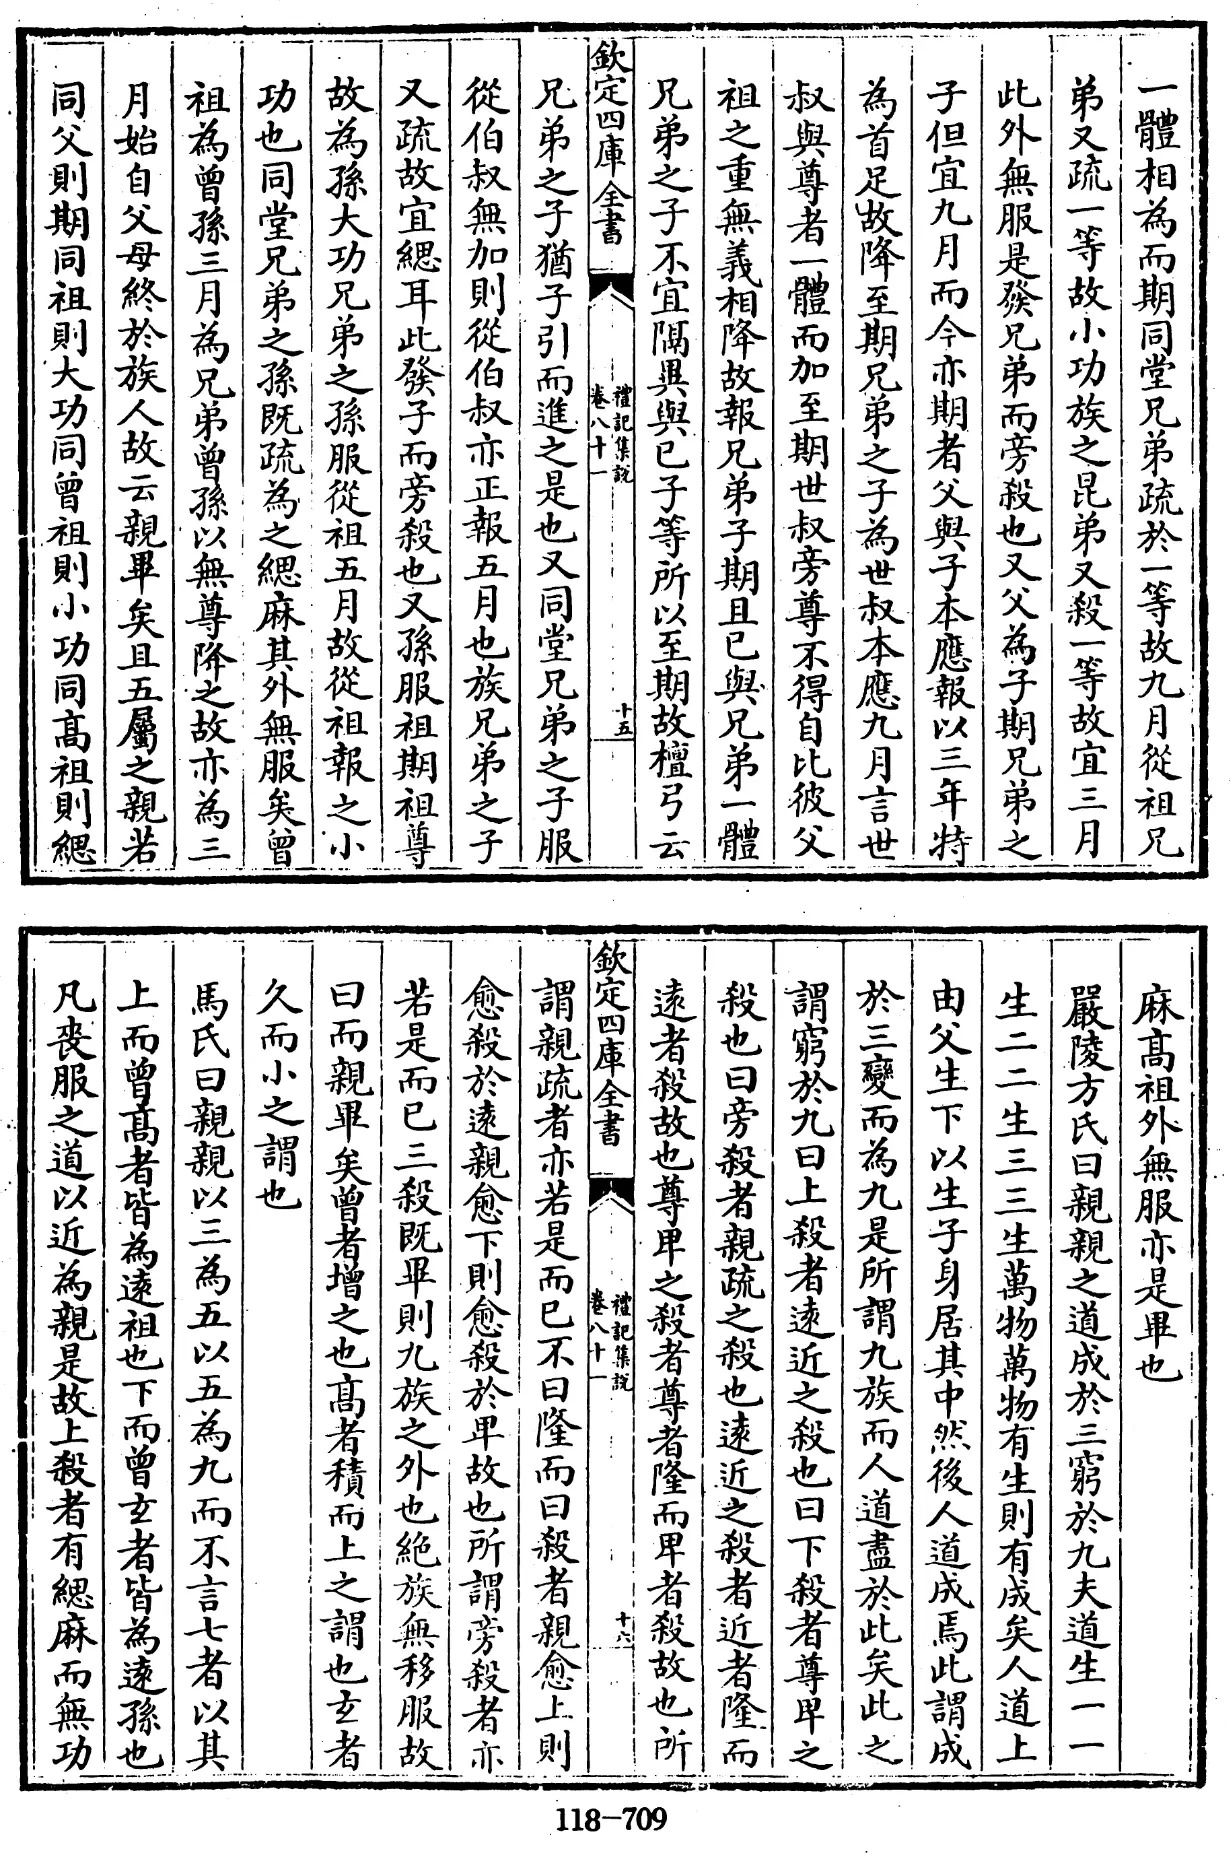 一體相為而期同堂兄弟疏於一等故九月從祖兄
弟又疏一等故小功族之昆弟又殺一等故宜三月
此外無服是發兄弟而旁殺也又父為子期兄弟之
子但宜九月而今亦期者父與子本應報以三年特
為首足故降至期兄弟之子為世叔本應九月言世
叔與尊者一體而加至期世叔旁尊不得自比彼父
祖之重無義相降故報兄弟子期且已與兄弟一體
兄弟之子不宜隔異與已子等所以至期故檀弓云
欽定四庫全書
禮記集說
卷八十一
十五
兄弟之子猶子引而進之是也又同堂兄弟之子服
從伯叔無加則從伯叔亦正報五月也族兄弟之子
又疏故宜緦耳此發子而旁殺也又孫服祖期祖尊
故為孫大功兄弟之孫服從祖五月故從祖報之小
功也同堂兄弟之孫既疏為之緦麻其外無服矣曾
祖為曾孫三月為兄弟曾孫以無尊降之故亦為三
月始自父母終於族人故云親畢矣且五屬之親若
同父則期同祖則大功同曾祖則小功同高祖則緦
麻高祖外無服亦是畢也
嚴陵方氏曰親親之道成於三窮於九夫道生一一
生二二生三三生萬物萬物有生則有成矣人道上
由父生下以生子身居其中然後人道成焉此謂成
於三變而為九是所謂九族而人道盡於此矣此之
謂窮於九曰上殺者遠近之殺也曰下殺者尊卑之
殺也曰旁殺者親疏之殺也遠近之殺者近者隆而
遠者殺故也尊卑之殺者尊者隆而卑者殺故也所
欽定四庫全書
禮記集說
卷八十一
十六
謂親疏者亦若是而已不曰隆而曰殺者親愈上則
愈殺於遠親愈下則愈殺於卑故也所謂旁殺者亦
若是而已三殺既畢則九族之外也絶族無移服故
曰而親畢矣曾者增之也高者積而上之謂也玄者
久而小之謂也
馬氏曰親親以三為五以五為九而不言七者以其
上而曾高者皆為遠祖也下而曾玄者皆為遠孫也
凡喪服之道以近為親是故上殺者有緦麻而無功
118-709